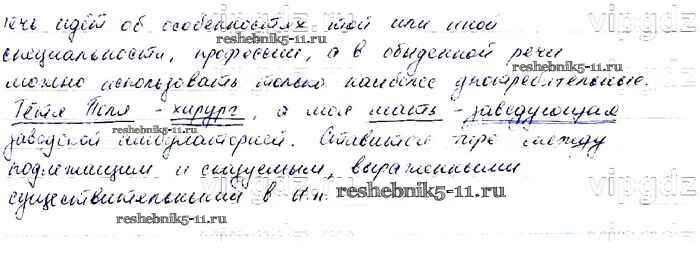 речь идёт об особенностях той или иной
reshebnik5-11.ru
vipgdz
специальности, профессии, а в обыденной речи
можно использовать только наиболее употребительные.
Тётя Поля - хирург, а моя мать - заведующая
reshebnik5-11.ru
заводской амбулаторией. Ставится тире между
подлежащим и сказуемым, выраженными
reshebnik5-11.ru
vipgdz
существительными в И.п.
reshebnik5-11.ru